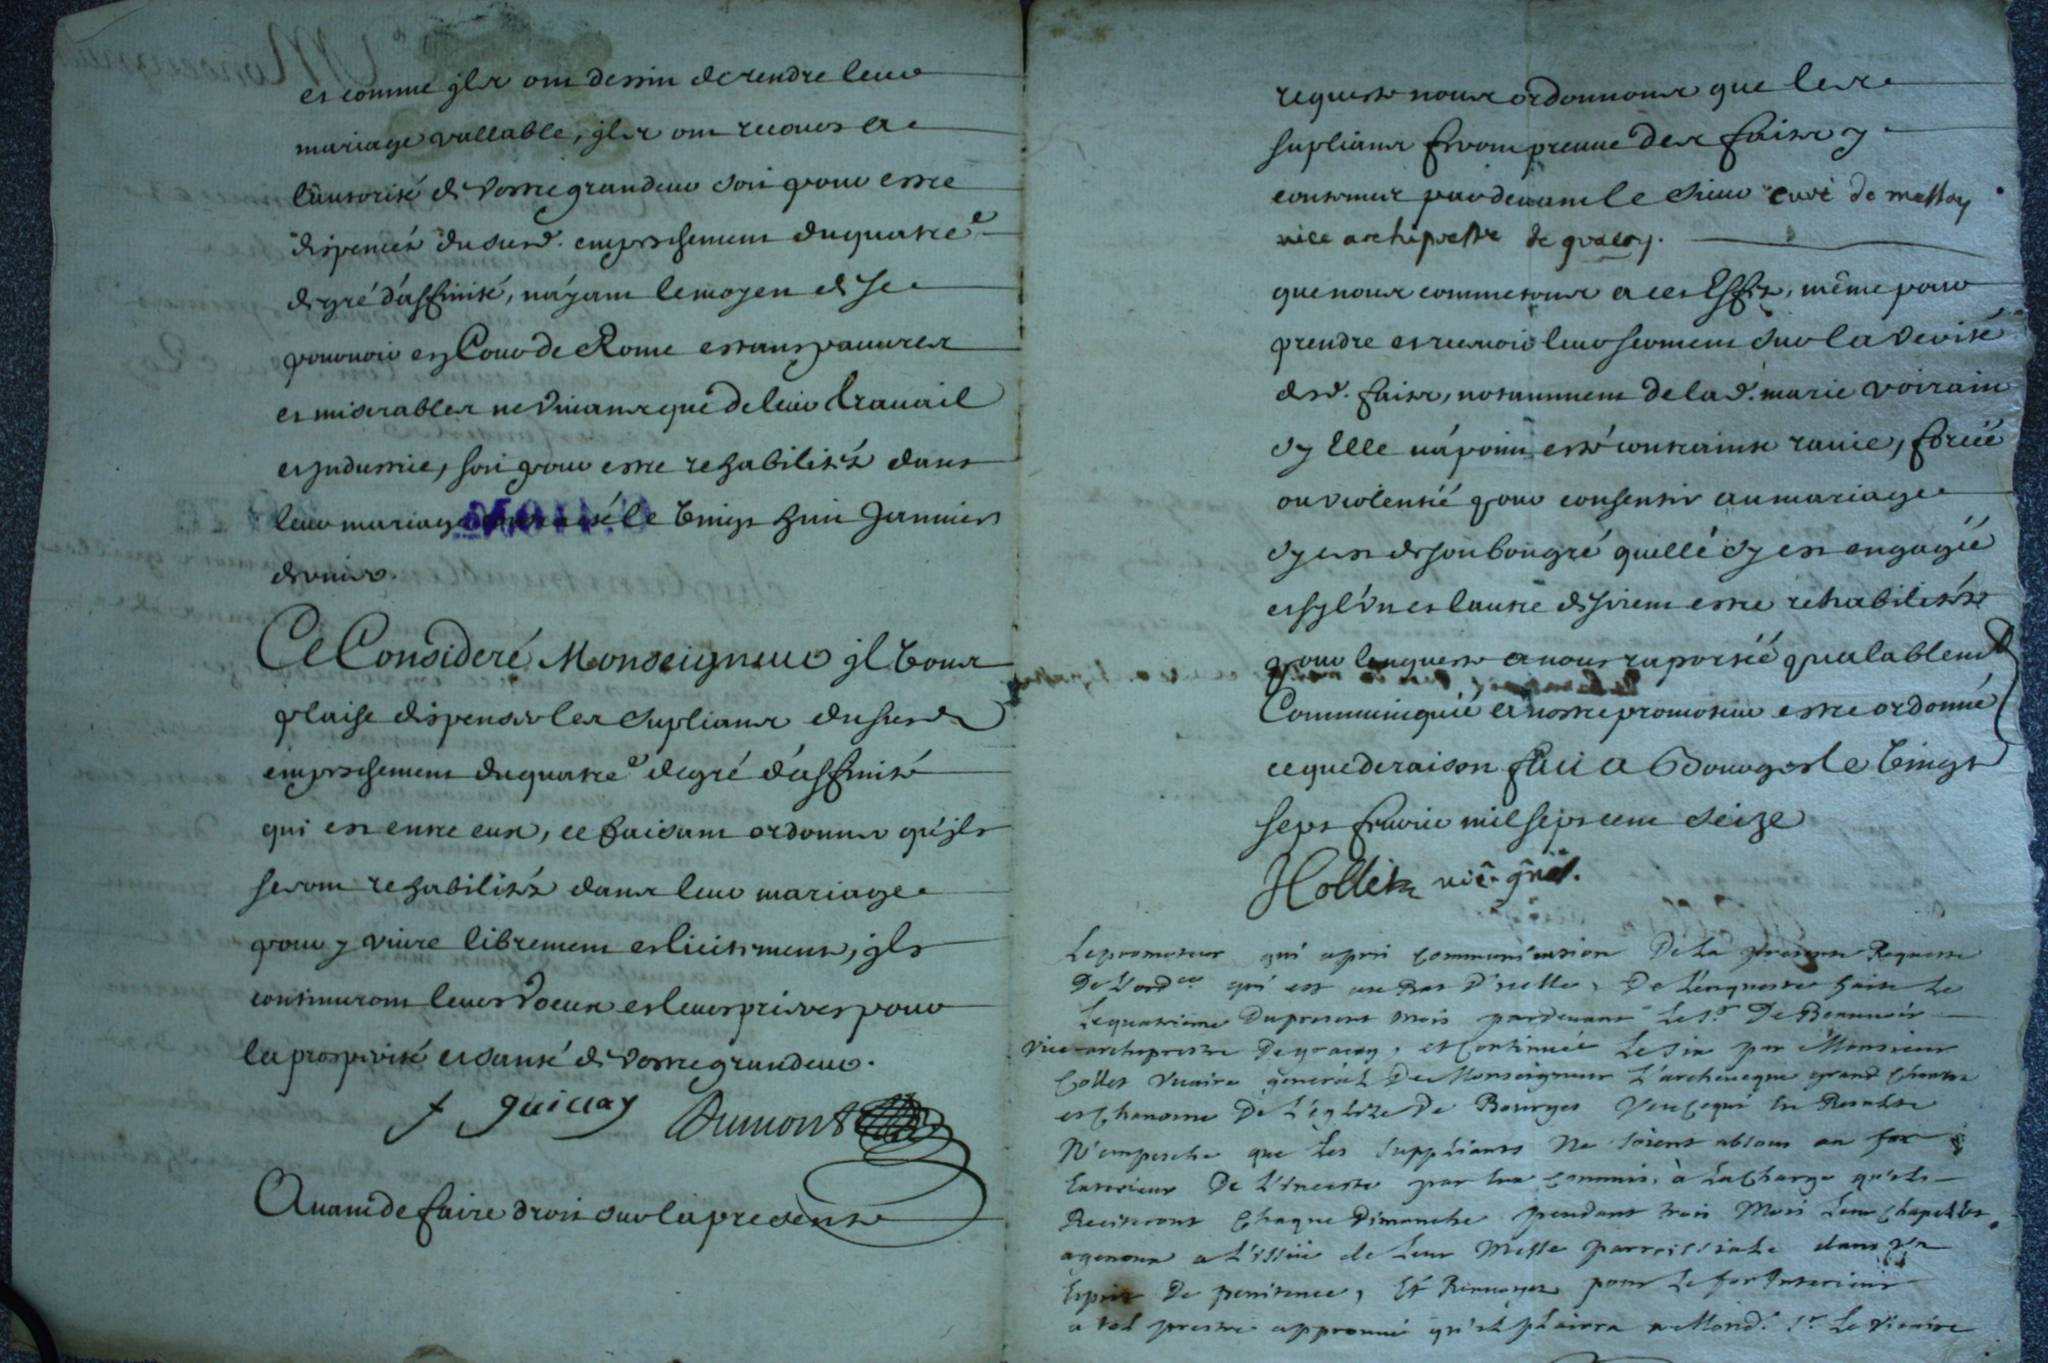 et comme jls ont dessin de rendre leur
mariage vallable, jls ont recours a
l'autorité de Vostre grandeur soit pour estre
dispencés du susd. empeschement du quatre e
degré d'affinité, n'ayant le moyen de se
pouruoir en Cour de Rome estans pauures
et miserables ne Viuans que de leur trauail
et jndustrie, soit pour estre rehabilités dans
leur mariage le Vingt huit januier
dernier.
Ce Consideré Monseigneur jl Vous
plaise dispenser les supliants du susd
empeschement du quatre e degré d'affinité
qui est entre eux, ce faisant ordonner qu'jls
seront rehabilités dans leur mariage
pour y viure librement et licitement, jls
continuront leurs Voeux et leurs prieres pour
la prosperité et santé de Vostre grandeur.
f guillay Dumont
Auant de faire droit sur la presente
requeste nous ordonnons que les
supliants feront preuue des faits y
contenus pardeuant le sieur curé de massay
vice archiprestre de graçay.
que nous commetons a cet Effet, même pour
prendre et receuoir leur serment sur la verité
desd. faits, notamment de la d. marie voirain
sy Elle n'a point esté contrainte rauie, forcée
ou violentée pour consentir au mariage
sy c'est de son bon gré qu'elle s'y est engagée
et sy l'vn et l'autre desirent estre rehabilités
pour l'enqueste a nous raportée prealablement
Communiquée a nostre promoteur estre ordonné
ce que de raison fait a Bourges le Vingt
sept feurier mil sept cent seize
Collet vic. gñal.
Le promoteur qui apris communication De La presente Requeste
De L'ord ce qui est au Bas D'icelle, De L'enqueste faite Le
Lequatrieme Du present mois pardeuant Le Sr. De Beauuoir
Vice-archiprestre De graçay, et Continuée Le six par Monsieur
Collet Vicaire general De Monseigneur L'archeueque grand Chantre
et Chanoine De L'eglize De Bourges Veu ce qui En Resulte
N'empesche que Les Suppliants Ne soient absous au for
Exterieur De L'inceste par Eux Commis, à La Charge qu'ils
Reciteront Chaque Dimanche pendant trois Mois Leur Chapelet
a genoux a L'issüe de Leur Messe parroissiale dans vn
Esprit De penitence, Et Renuoyés pour Le for Interieur
a tel prestre approuué qu'il plairra a Mond. Sr. Le Vicaire